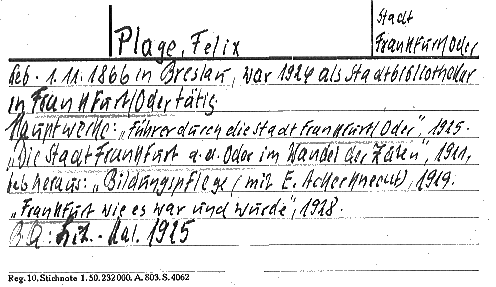 Stadt
Plage, Felix
Frankfurt/Oder
geb. 1.11.1866 in Breslau, war 1924 als Stadtbibliothekar
in Frankfurt/Oder tätig.
Hauptwerke: „Führer durch die Stadt Frankfurt/Oder", 1925.
„Die Stadt Frankfurt a.d. Oder im Wandel der Zeiten", 1921,
gab heraus: „Bildungspflege (mit E. Ackerknecht), 1919.
„Frankfurt wie es war und wurde", 1928.
B.Q: Lit.-Kal. 1925
Reg. 10. Stichnote 1. 50. 232 000. A. 803. S. 4062